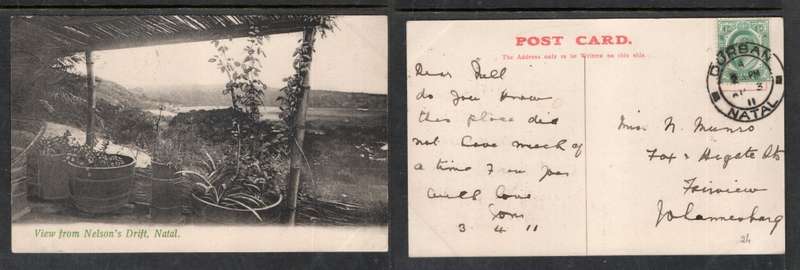 View from Nelson's Drift, Natal.
POST CARD.
The Address only to be Written on this side
Dear Nell
do you know
this place did
not have much of
a time
with love
Tom
3 4 11
DURBAN
PM
3
11
NATAL
Miss N. Munro
Fox & Higate Sts
Fairview
Johannesburg
24